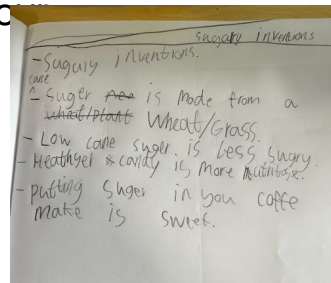 sugary inventions
- Sugary inventions.
cane
^ - Suger is made from a
wheat/plant Wheat/Grass.
- Low cane suger. is Less sugry.
- Heathyer & candy is More
- putting Suger in you coffe
make is sweet.